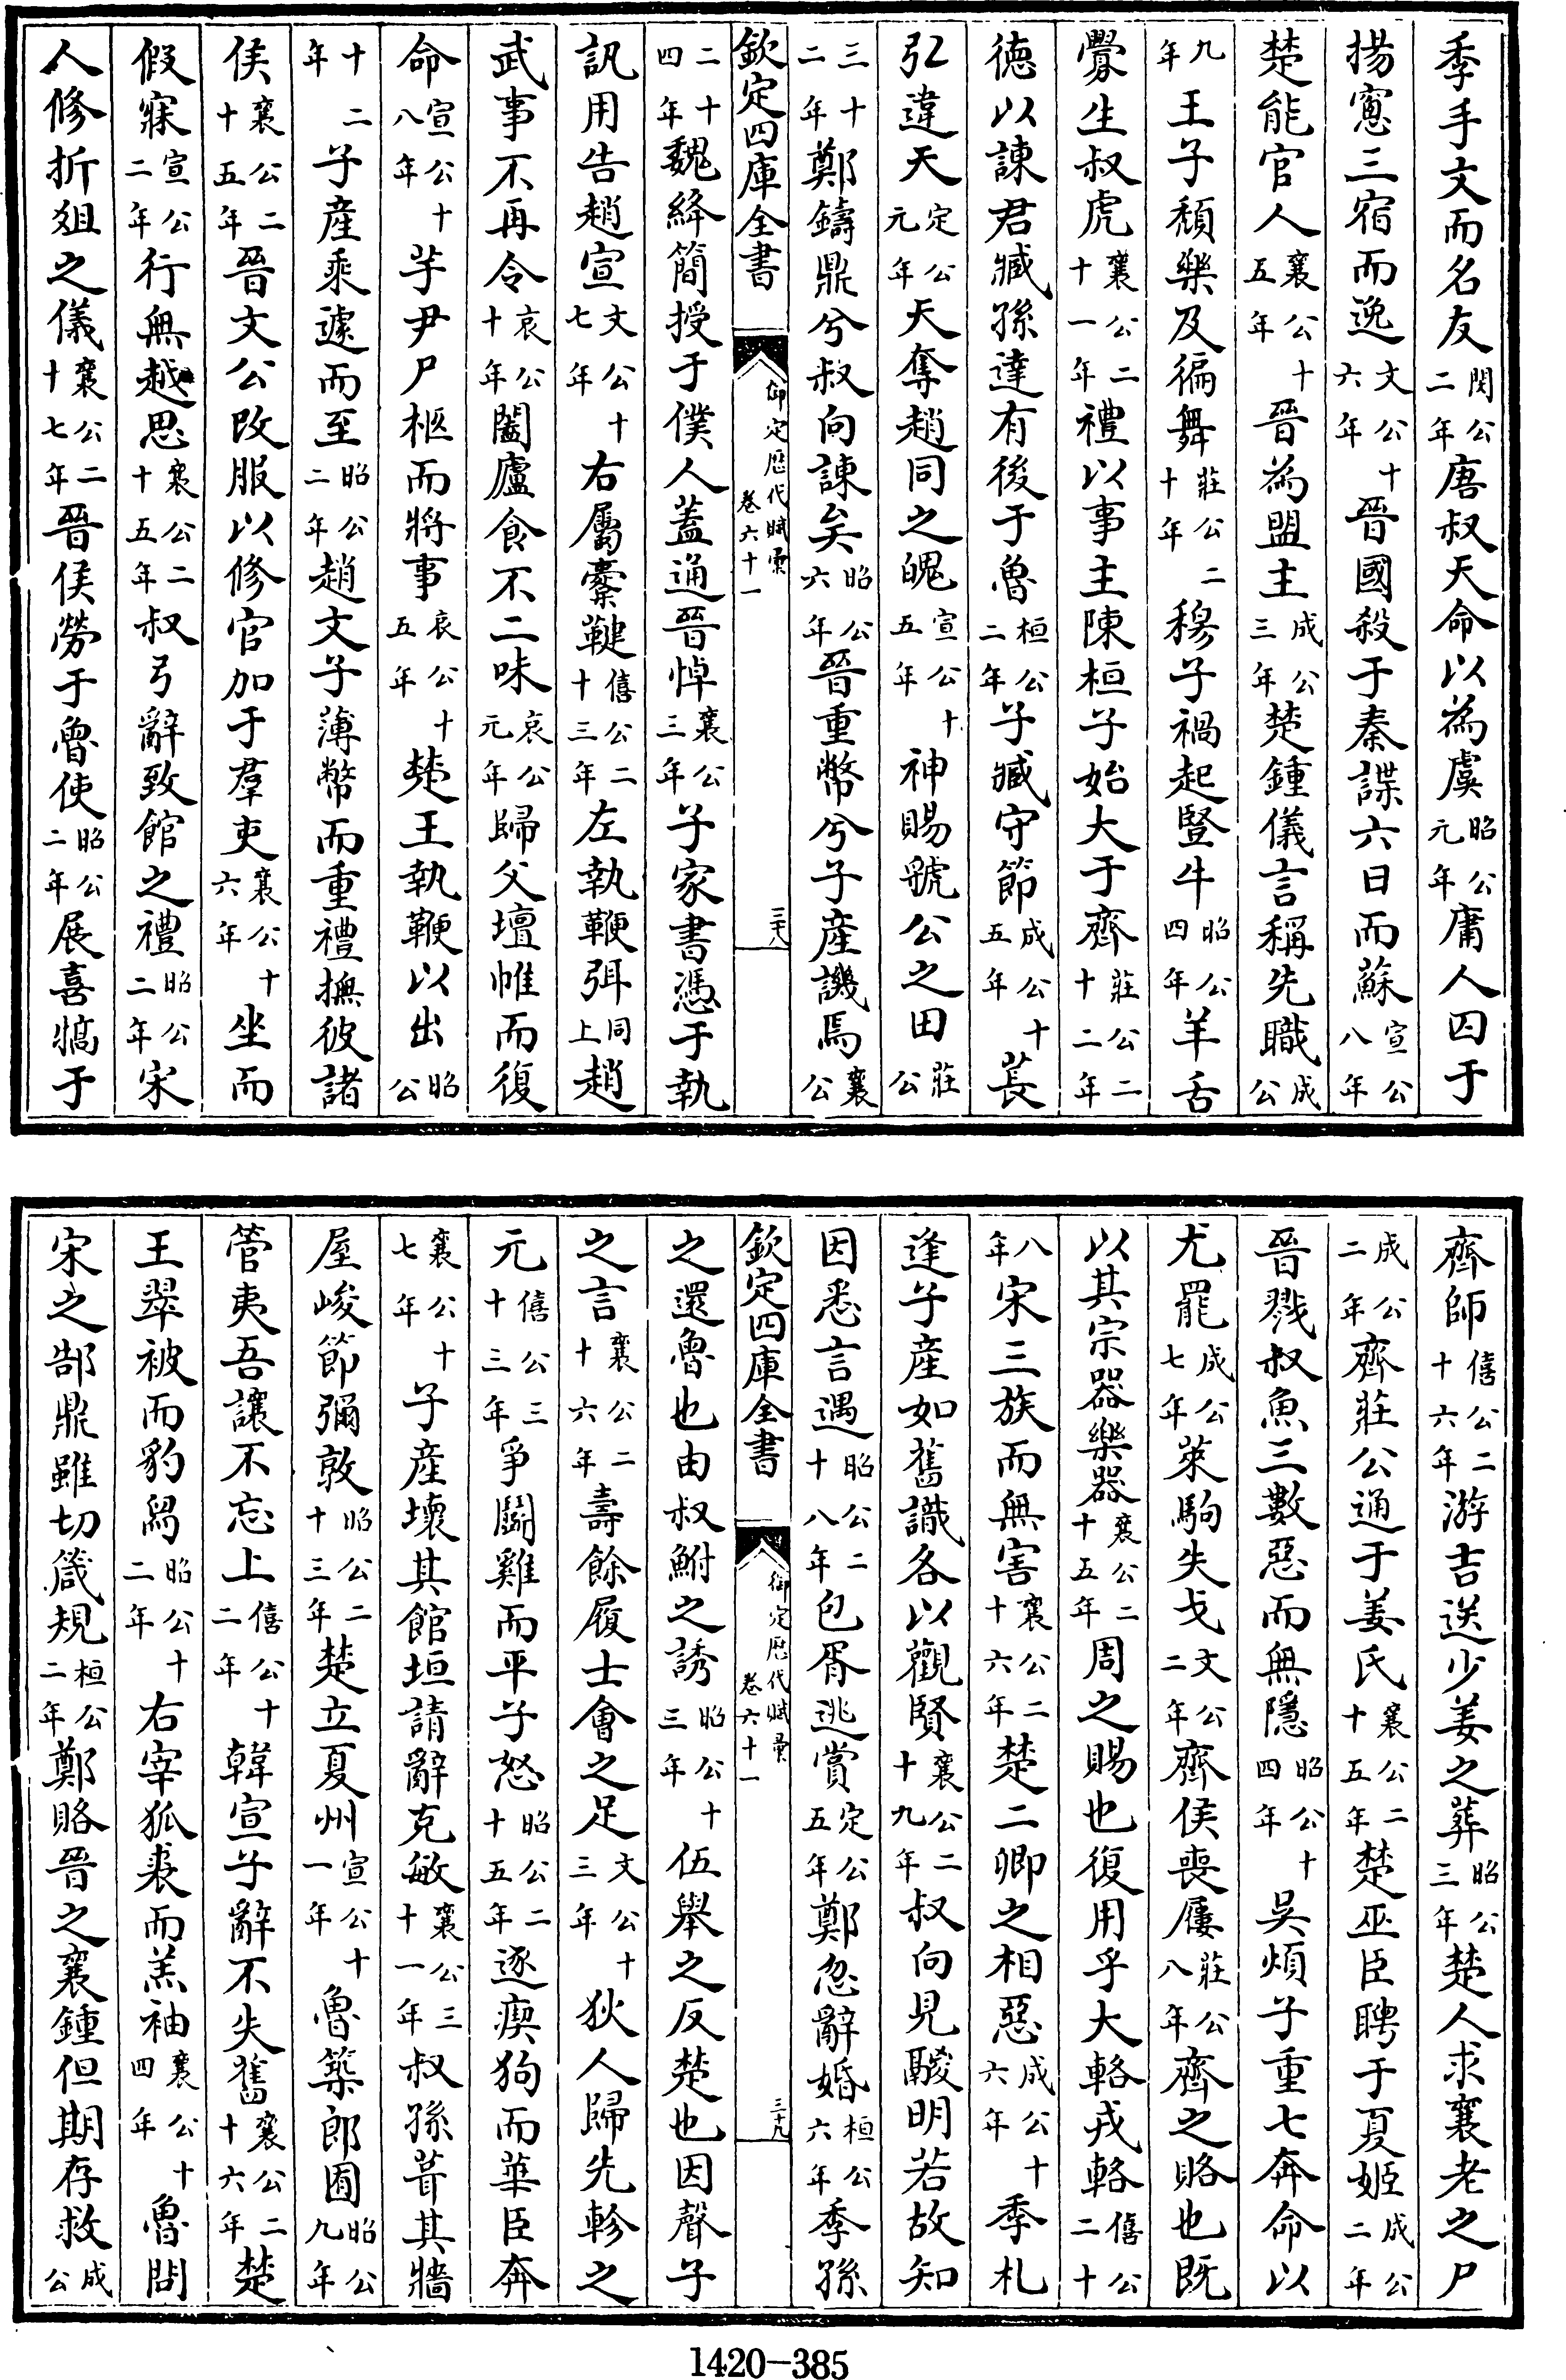 季手文而名友閔公二年唐叔天命以為虞昭公元年庸人囚于
揚窻三宿而逸文公十六年晉國殺于秦諜六日而蘇宣公八年
楚能官人襄公十五年晉為盟主成公三年楚鍾儀言稱先職成公
九年王子頽樂及徧舞莊公二十年穆子禍起豎牛昭公四年羊舌
釁生叔虎襄公二十一年禮以事主陳桓子始大于齊莊公二十二年
德以諫君臧孫達有後于魯桓公二年子臧守節成公十五年萇
弘違天定公元年天奪趙同之魄宣公十五年神賜虢公之田莊公
三十二年鄭鑄鼎兮叔向諫矣昭公六年晉重幣兮子產譏焉襄公
欽定四庫全書 御定歷代賦彙 卷六十一 三十八
二十四年魏絳簡授于僕人蓋通晉悼襄公三年子家書憑于執
訊用告趙宣文公十七年右屬櫜鞬僖公二十三年左執鞭弭同上趙
武事不再令哀公十年闔廬食不二味哀公元年歸父壇帷而復
命宣公十八年芋尹尸柩而將事哀公十五年楚王執鞭以出昭公
十二年子產乘遽而至昭公二年趙文子薄幣而重禮撫彼諸
侯襄公二十五年晉文公改服以修官加于羣吏襄公十六年坐而
假寐宣公二年行無越思襄公二十五年叔弓辭致館之禮昭公二年宋
人修折俎之儀襄公二十七年晉侯勞于魯使昭公二年展喜犒于
齊師僖公二十六年游吉送少姜之葬昭公三年楚人求襄老之尸
成公二年齊莊公通于姜氏襄公二十五年楚巫臣聘于夏姬成公二年
晉戮叔魚三數惡而無隱昭公十四年吳煩子重七奔命以
尤罷成公七年萊駒失戈文公二年齊侯喪屨莊公八年齊之賂也既
以其宗器樂器襄公二十五年周之賜也復用乎大輅戎輅僖公二十
八年宋三族而無害襄公二十六年楚二卿之相惡成公十六年季札
逢子產如舊識各以觀賢襄公二十九年叔向見鬷明若故知
因悉言遇昭公二十八年包胥逃賞定公五年鄭忽辭婚桓公六年季孫
欽定四庫全書 御定歷代賦彙 卷六十一 三十九
之還魯也由叔鮒之誘昭公十三年伍舉之反楚也因聲子
之言襄公二十六年壽餘履士會之足文公十三年狄人歸先軫之
元僖公三十三年爭鬭雞而平子怒昭公二十五年逐瘈狗而華臣奔
襄公十七年子產壞其館垣請辭克敏襄公三十一年叔孫葺其牆
屋峻節彌敦昭公二十三年楚立夏州宣公十一年魯築郎囿昭公九年
管夷吾讓不忘上僖公十二年韓宣子辭不失舊襄公二十六年楚
王翠被而豹舄昭公十二年右宰狐裘而羔袖襄公十四年魯問
宋之郜鼎雖切箴規桓公二年鄭賂晉之襄鍾但期存救成公
1420-385